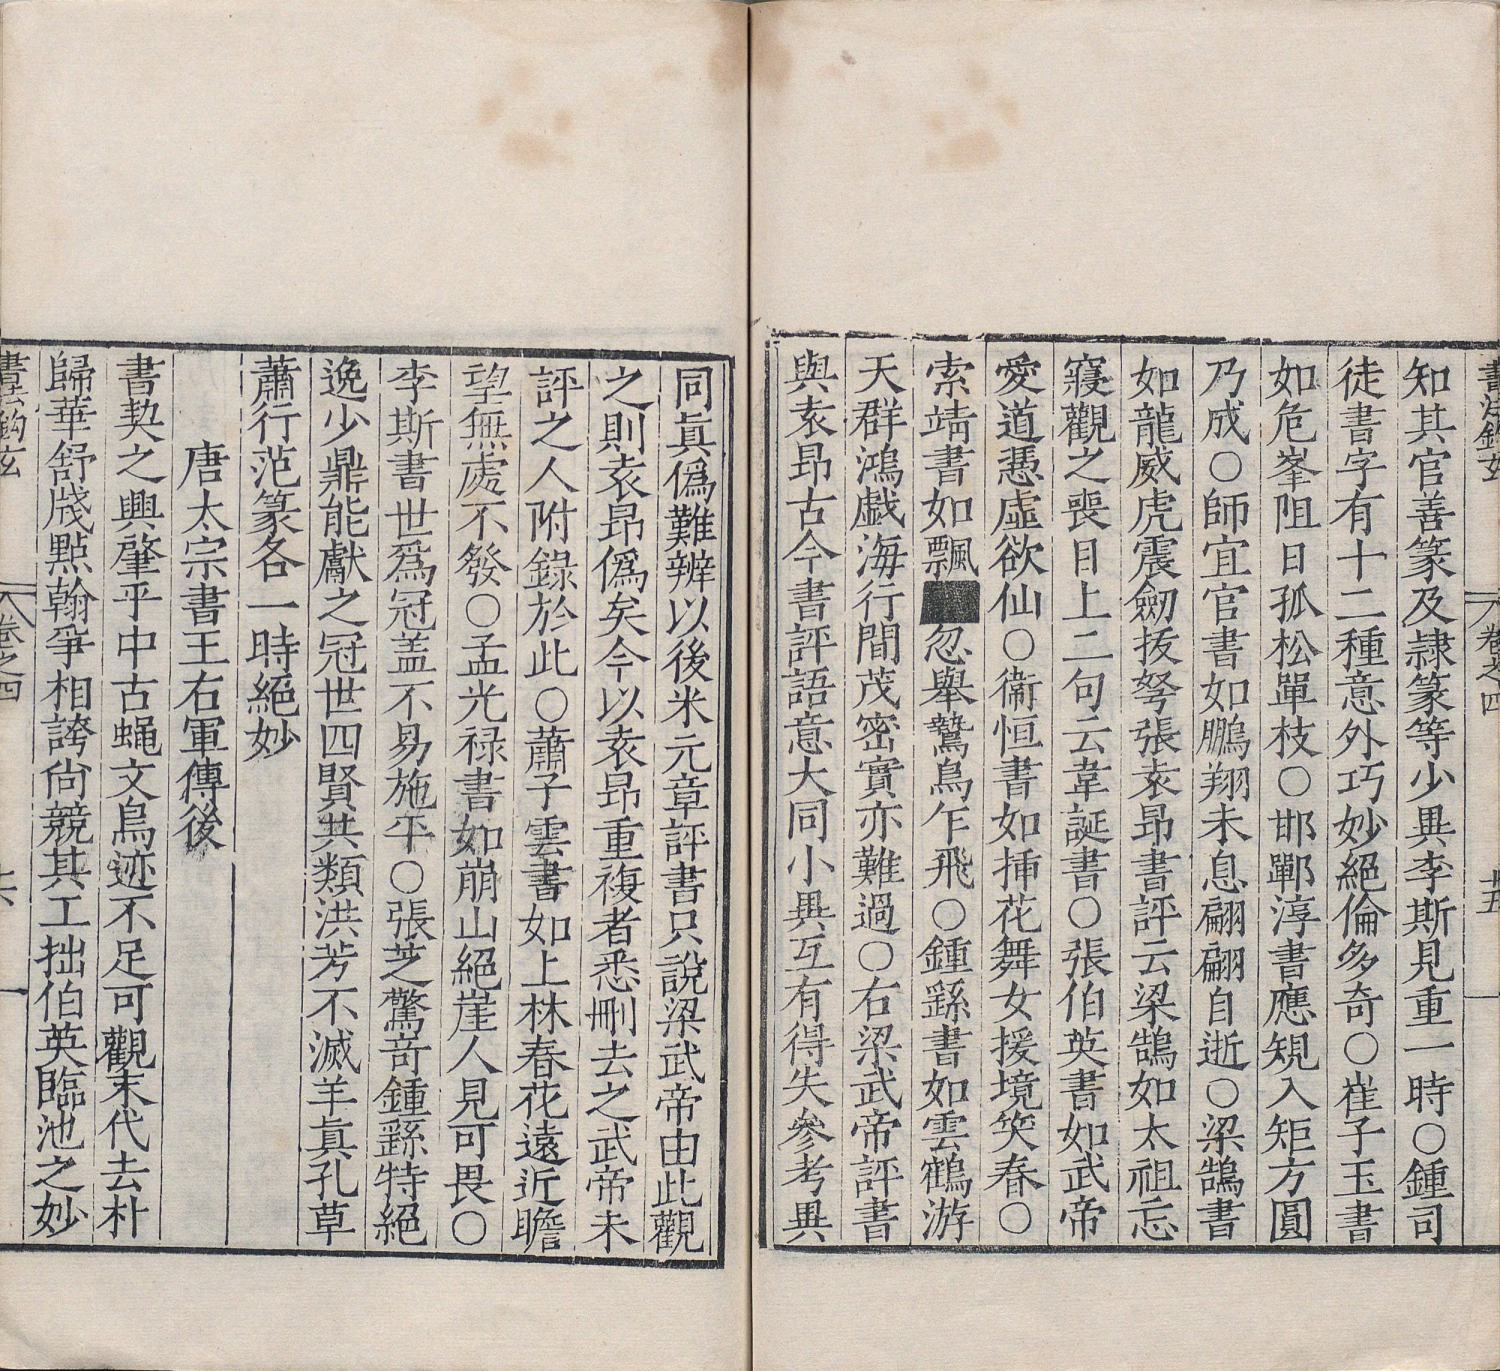 書法鉤玄
卷之四
十五
知其官善篆及隷篆等少異李斯見重一時○鍾司
徒書字有十二種意外巧妙絕倫多奇○崔子玉書
如危峯阻日孤松單枝○邯鄲淳書應規入矩方圓
乃成○師宜官書如鵬翔未息翩翩自逝○梁鵠書
如龍威虎震劒拔弩張袁昂書評云梁鵠如太祖忘
寢觀之喪目上二句云韋誕書○張伯英書如武帝
愛道憑虛欲仙○衞恒書如揷花舞女援境笑春○
索靖書如飄忽舉鷙鳥乍飛○鍾繇書如雲鶴游
天群鴻戲海行間茂密實亦難過○右梁武帝評書
與袁昂古今書評語意大同小異互有得失參考異
同眞僞難辨以後米元章評書只說梁武帝由此觀
之則袁昂僞矣今以袁昂重複者悉刪去之武帝未
評之人附錄於此○蕭子雲書如上林春花遠近瞻
望無處不發○孟光祿書如崩山絕崖人見可畏○
李斯書世爲冠盖不易施平○張芝驚竒鍾繇特絕
逸少鼎能獻之冠世四賢共類洪芳不滅羊眞孔草
蕭行范篆各一時絕妙
唐太宗書王右軍傳後
書契之興肇乎中古蝇文鳥迹不足可觀末代去朴
歸華舒牋點翰爭相誇尙競其工拙伯英臨池之妙
書法鉤玄
卷之四
十六